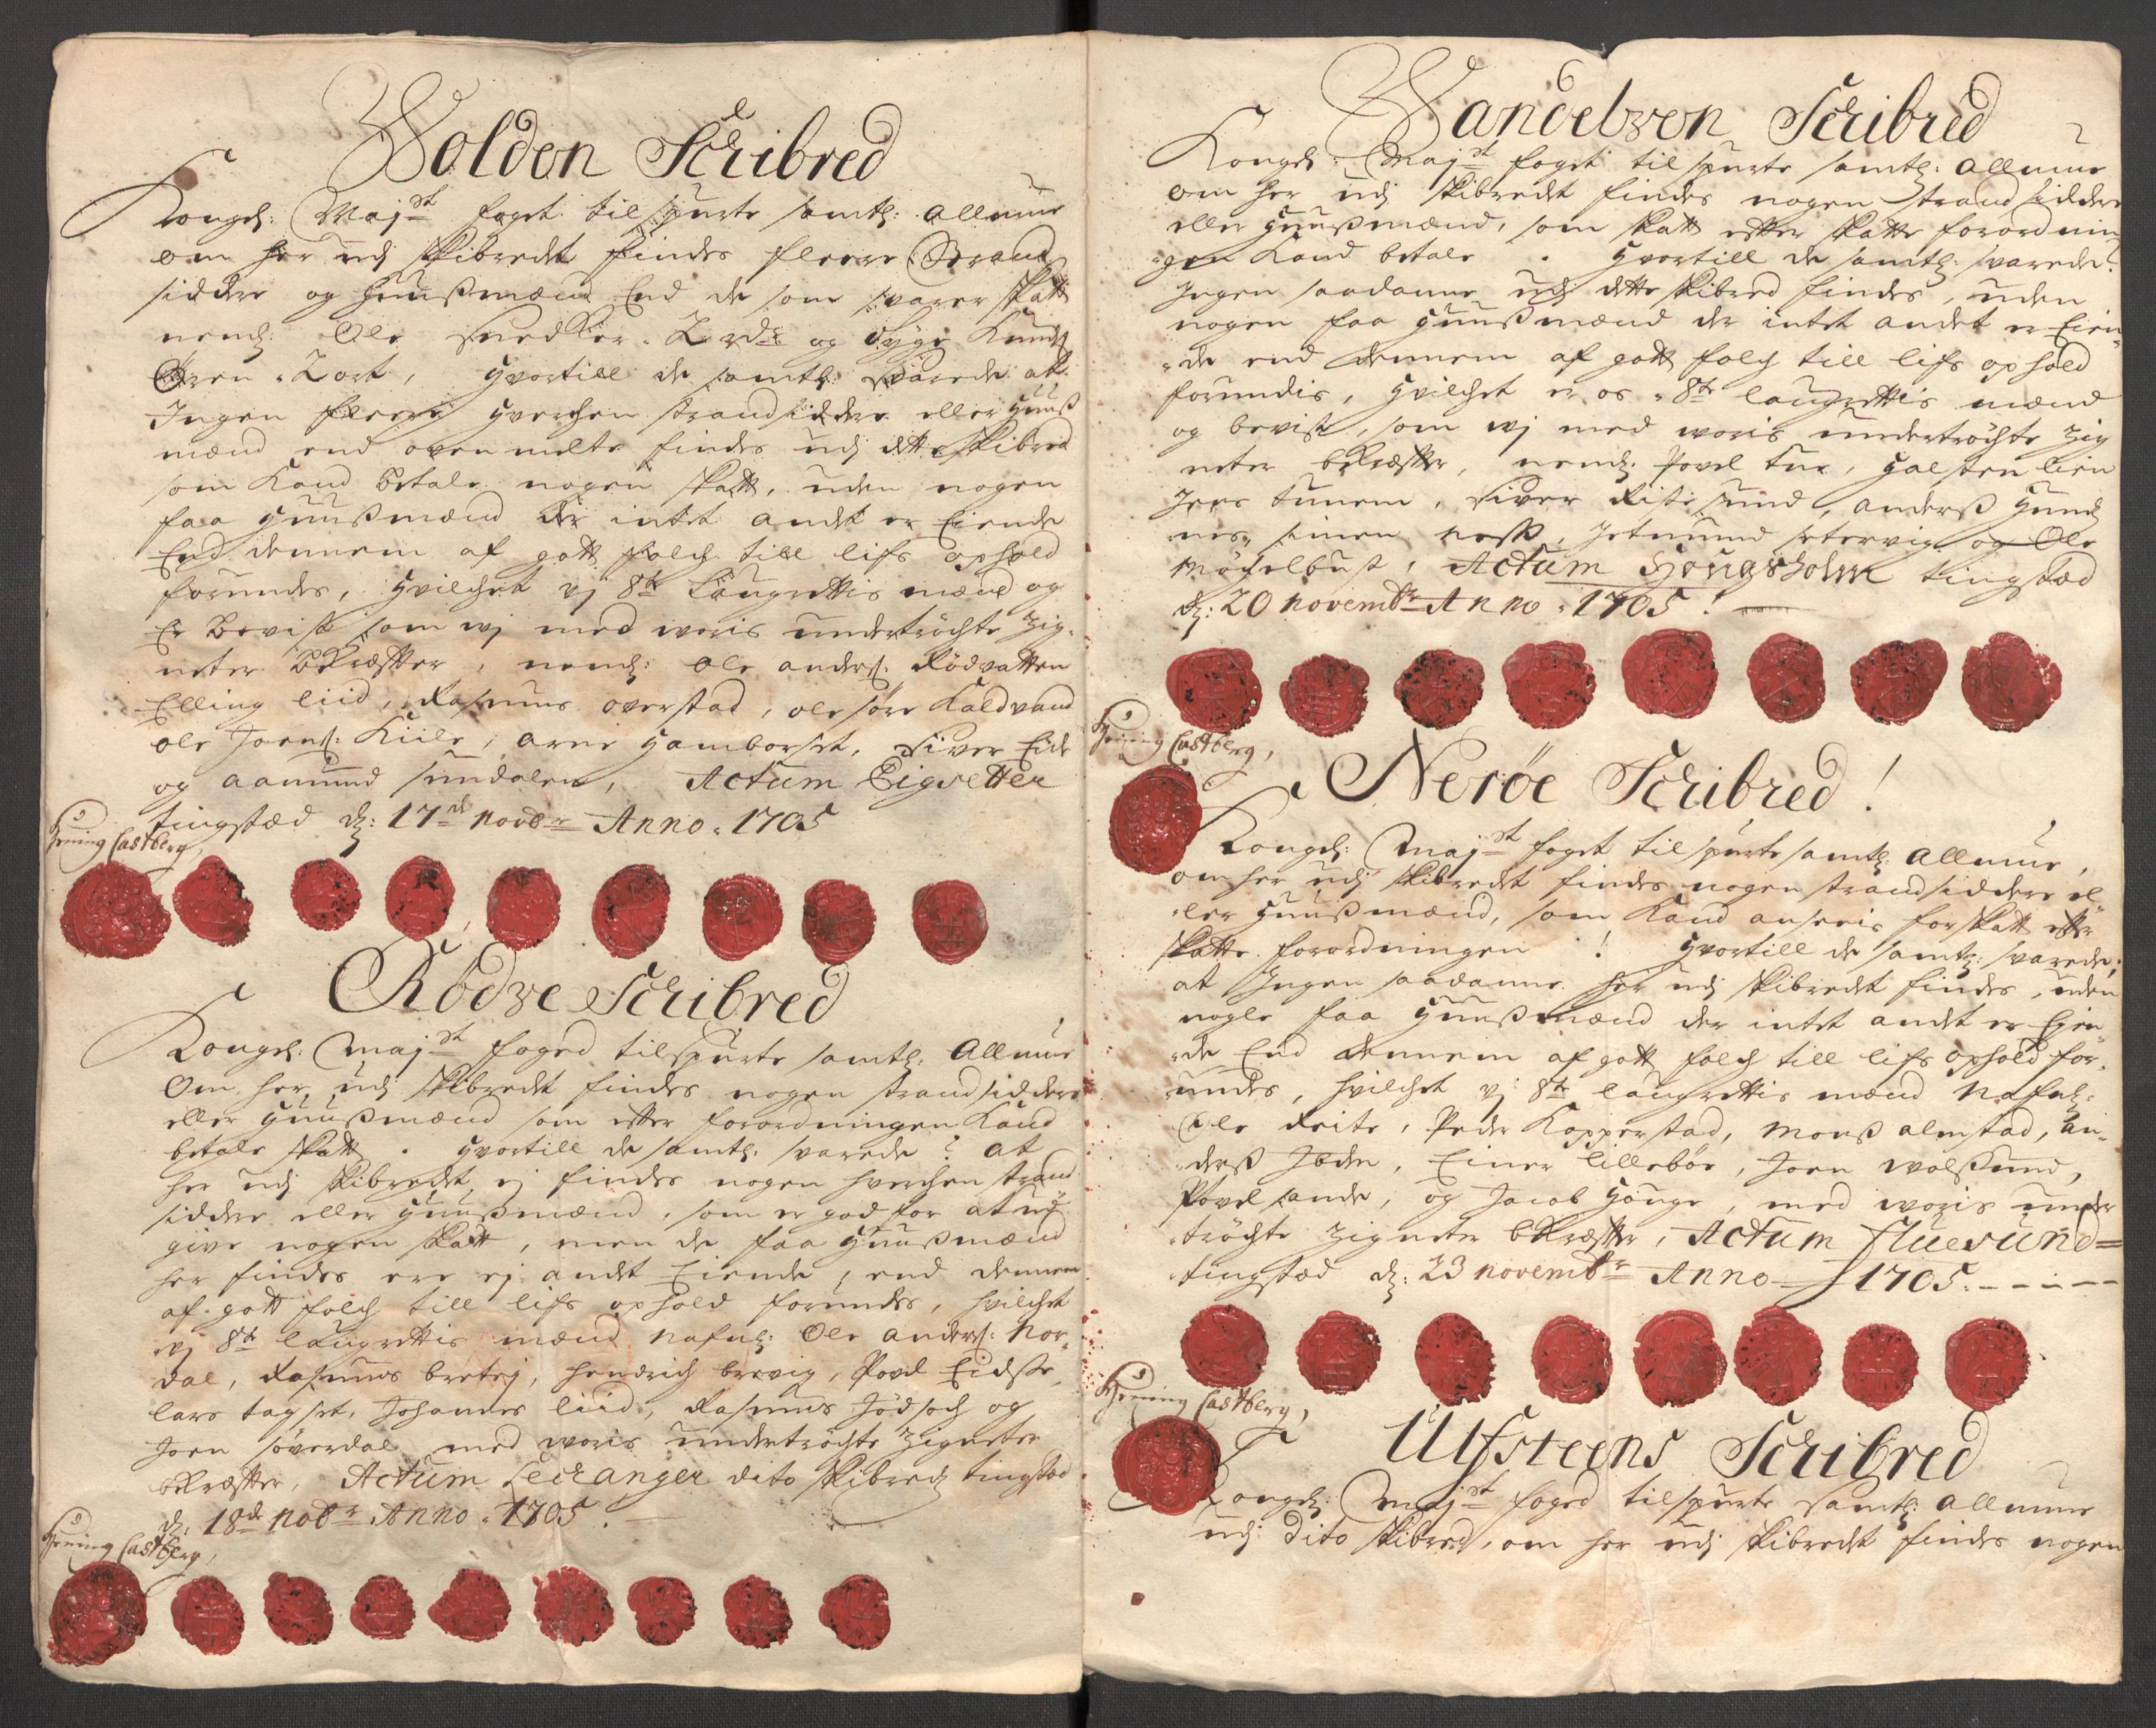 Volden Schibred
Kongel: Mayst foget tilspurte samtl: Allmue
om her udj Skibredt findes fleere Strand
sidder og Huusmænd End de som svarer Skatt
nemlig Ole Snedker 2 rdr og Syge Knuds
Øren 2 ort, Hvortill de samtl: svarede at
Ingen fleere hverchen strandsiddere eller huus
mænd end ovenmelte findes udj dette Skibred
som Kand betale nogen Skatt, uden nogen
faa Huusmænd der intet andet er Eiende
End dennem af gott folch till lifs ophold
forundes, hvilchet vj 8te Laugrettis mænd og
Er Bevist som vj med woris undertröchte Zig-
neter bekræffter, nemd: Ole anders: Rödvatten
Elling liid, Rasmus overstad, ole söre Kaldvand
ole Joens: Kiile, arne Hamborset, Siver Eide
og aamund Sundalen, Actum Eigsetter
tingstæd d: 17de Novbr Anno 1705
Hening Castberg,
Rödze Schibred
Kongel: Mayst foged tilspurte samtl: Allmue
Om her udj Skibredt findes nogen strandsiddere
eller Huusmænd som efter forordningen Kand
betale Skatt. Hvortill de samtl: svarede: at
her udj Skibredt ej findes nogen hverchen strand
sidder eller Huusmænd, som er god for at ud
give nogen Skatt, men de faa Huusmænd
her findes ere ej andet Eiende, end dennem
af gott folch till lifs ophold forundes, hvilchet
vj 8te laugrettis mænd Nafnl: Ole anders: Nor-
dal, Rasmus bretej, Hendrich brevig, Povel Eidsse,
lars tagset, Johannes liid, Rasmus Födsech og
Joen söverdal med woris undertröchte Zigneter
bekræffter, Actum Lechanger dito Skibredz tingstæd
d: 18de Nobr Anno 1705.
Hening Castberg,
Vandelven Schibred
Kongel: Mayst foget tilspurte samtl: allmue
om her udj Skibredt findes nogen strandsiddere
eller Huusmænd, som Skatt efter Skatte forordnin-
gen Kand betale. Hvortill de samtl: svarede:
Ingen saadanne udj dette Skibred findes, uden
nogen faa Huusmænd der intet andet er Eien-
de end dennem af gott folch till lifs ophold
forundis, hvilchet er os 8te laugrettis mænd
og bevist, som vj med woris undertröchte Zig
neter bekræffter, nemd: Povel tue, Halsten lien
Jens tunem, Siver Ristesund, anderss Hund
nes, simen ness, Jetmund setervig og Ole
Möchelbust, Actum Hougsholm tingstæd
d: 20 Novembr Anno 1705.
Hening Castberg,
Neröe Schibred!
Kongel: Mayst foget tilspurte samtl: allmue,
om her udj Skibredt findes nogen strandsiddere el-
ler Huusmænd, som Kand ansees for Skatt efter
Skatte forordningen! Hvortill de samtl: svarede:
at Ingen saadanne her udj Skibredt findes, uden
nogle faa Huusmænd der intet andet er Eien-
de End dennem af gott folch till lifs ophold for-
undes, hvilchet vj 8te laugrettis mænd Nafnl:
Ole Reite, Peder Kopperstad, Monss almstad, an-
derss Jbden, Einer lilleböe, Joen Walssund,
Povel sande, og Jacob Houge, med woris under
tröchte Zigneter bekræffter, Actum Fluesund=
tingstæd d: 23 novembr Anno 1705.
Hening Castberg,
Ulfsteens Schibred
Kongel: Mayst foged tilspurte samtl: allmue
udj Dito Skibred, om her udj Skibredt findes nogen